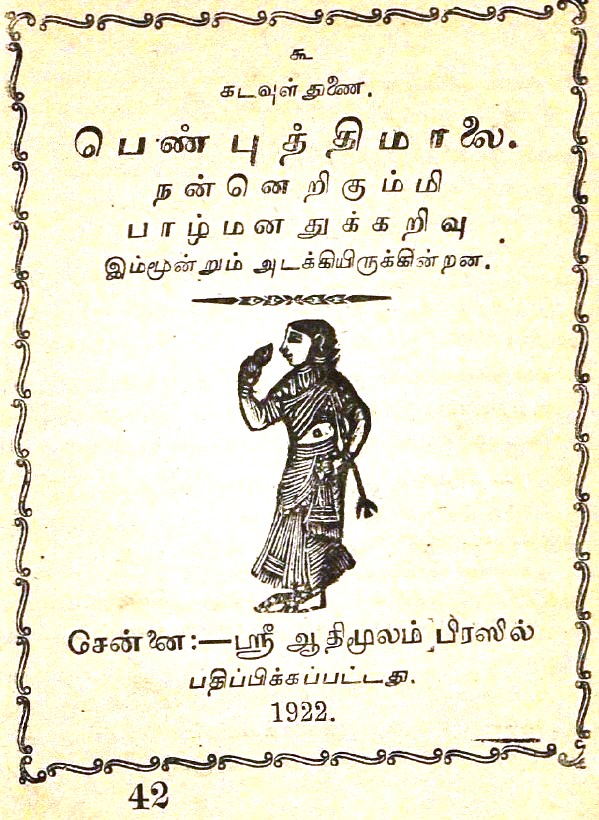 கூ
கடவுள் துணை.
பெண்புத்திமாலை.
நன்னெறிகும்மி
பாழ்மனதுக்கறிவு
இம்மூன்றும் அடக்கியிருக்கின்றன.
சென்னை:—ஸ்ரீ ஆதிமூலம் பிரஸில்
பதிப்பிக்கப்பட்டது.
1922.
42